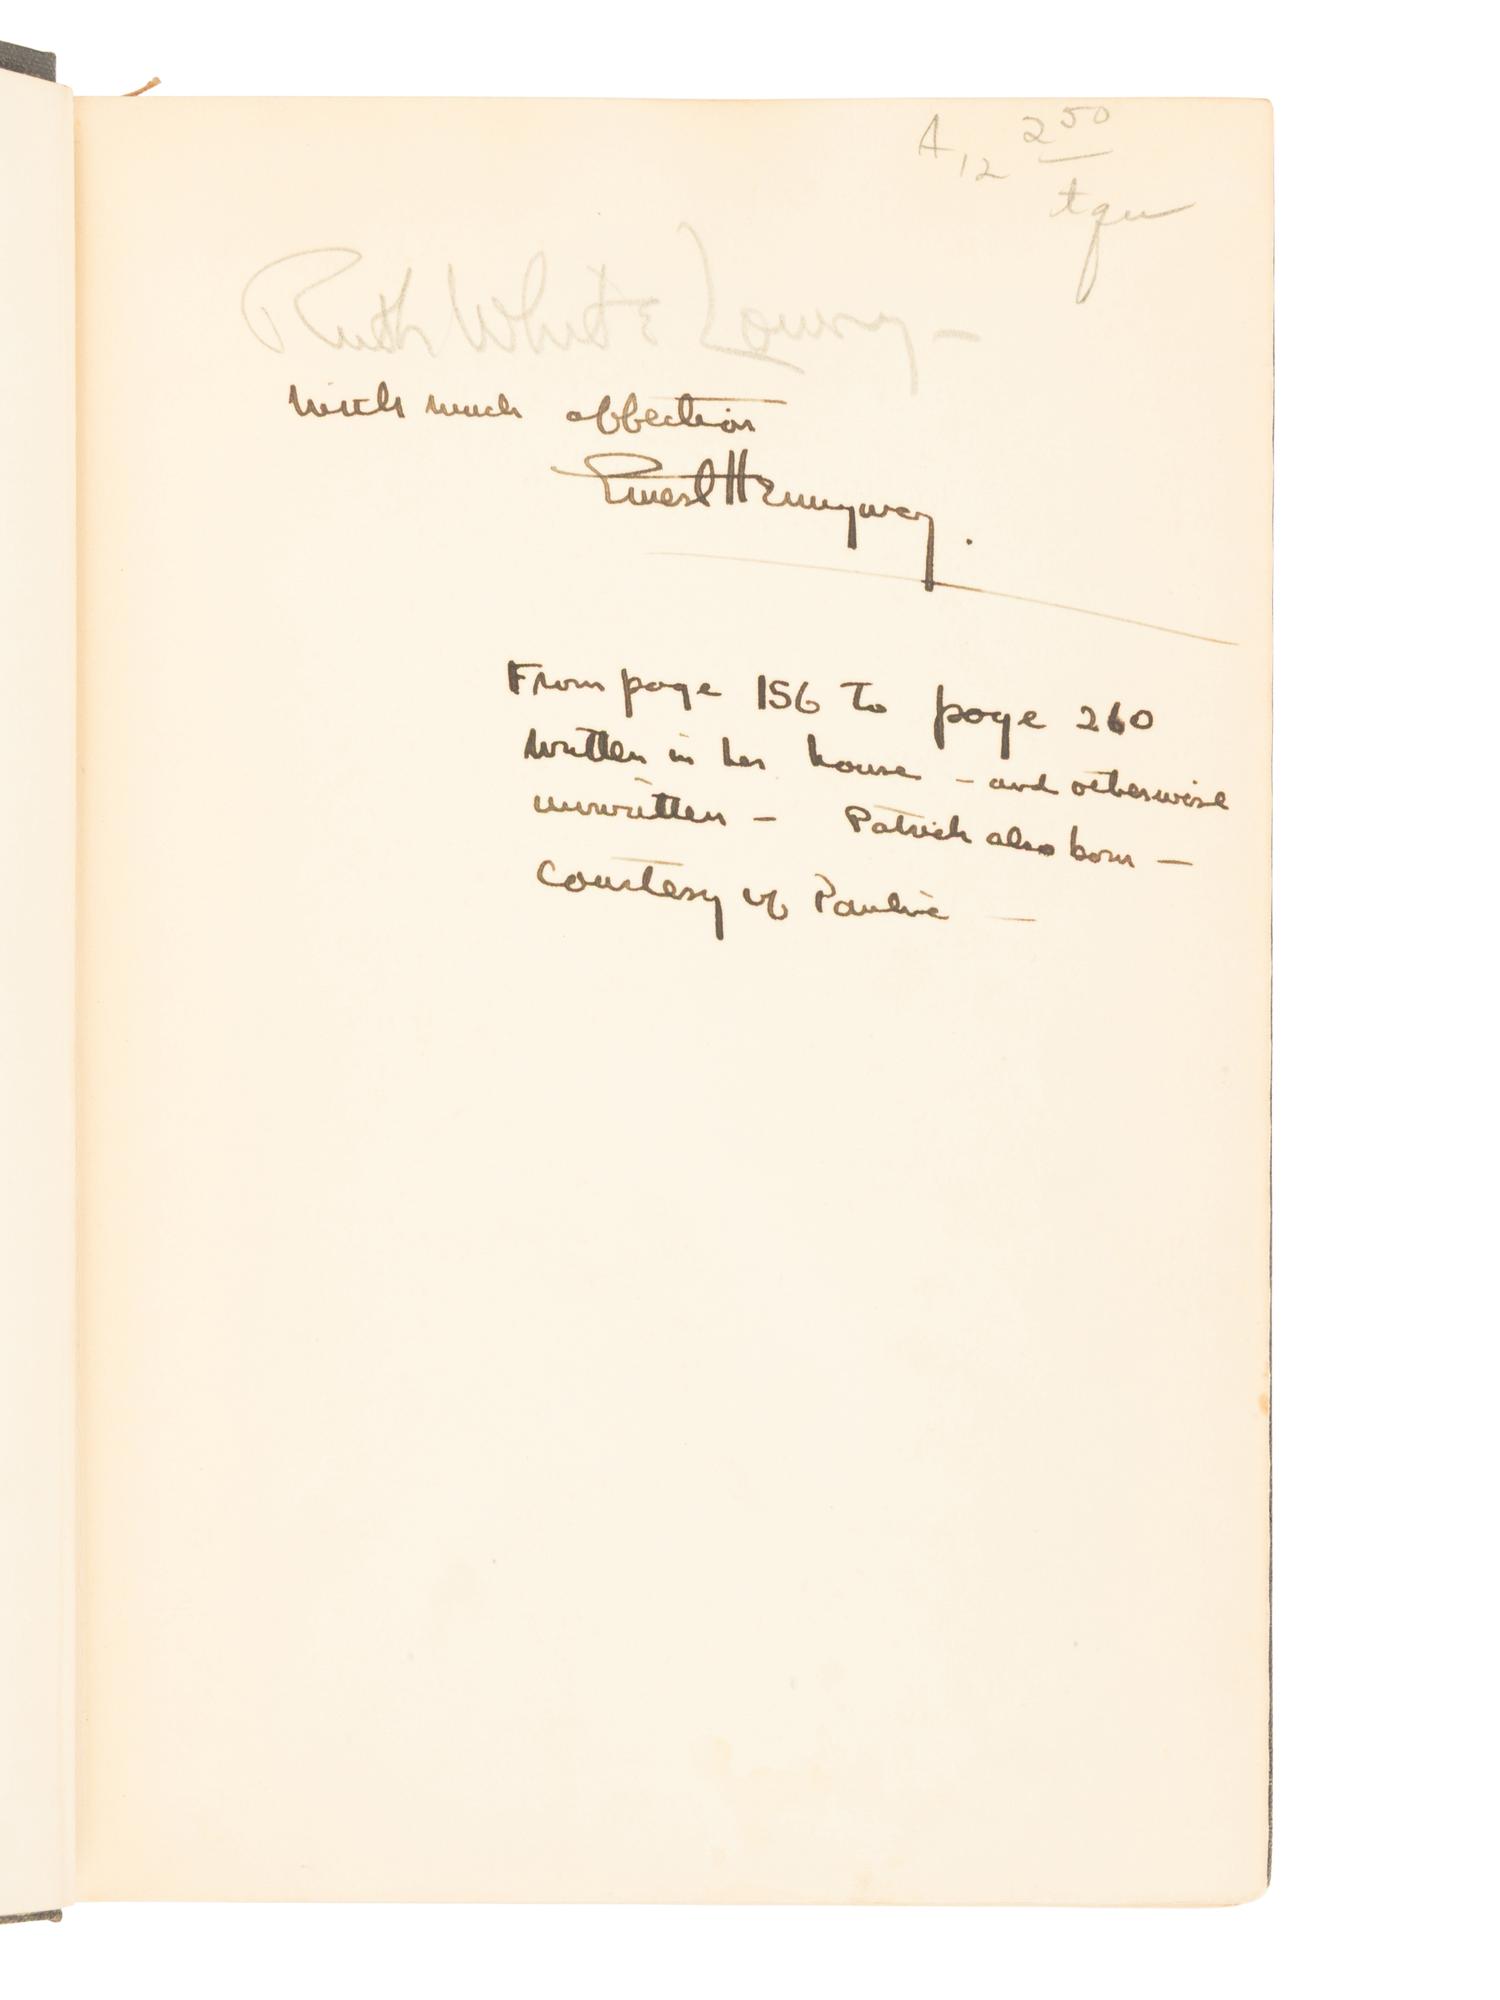 A12 2 50
Ruth White Lowry —
With much affection
Ernest Hemingway.
From page 156 to page 260
written in her house — and otherwise
unwritten — Patrick also born —
Courtesy of Pauline —